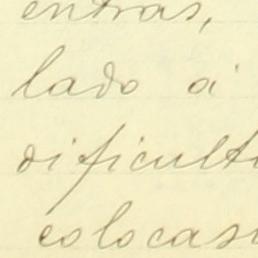 entras,
lado á
dificult
colocas